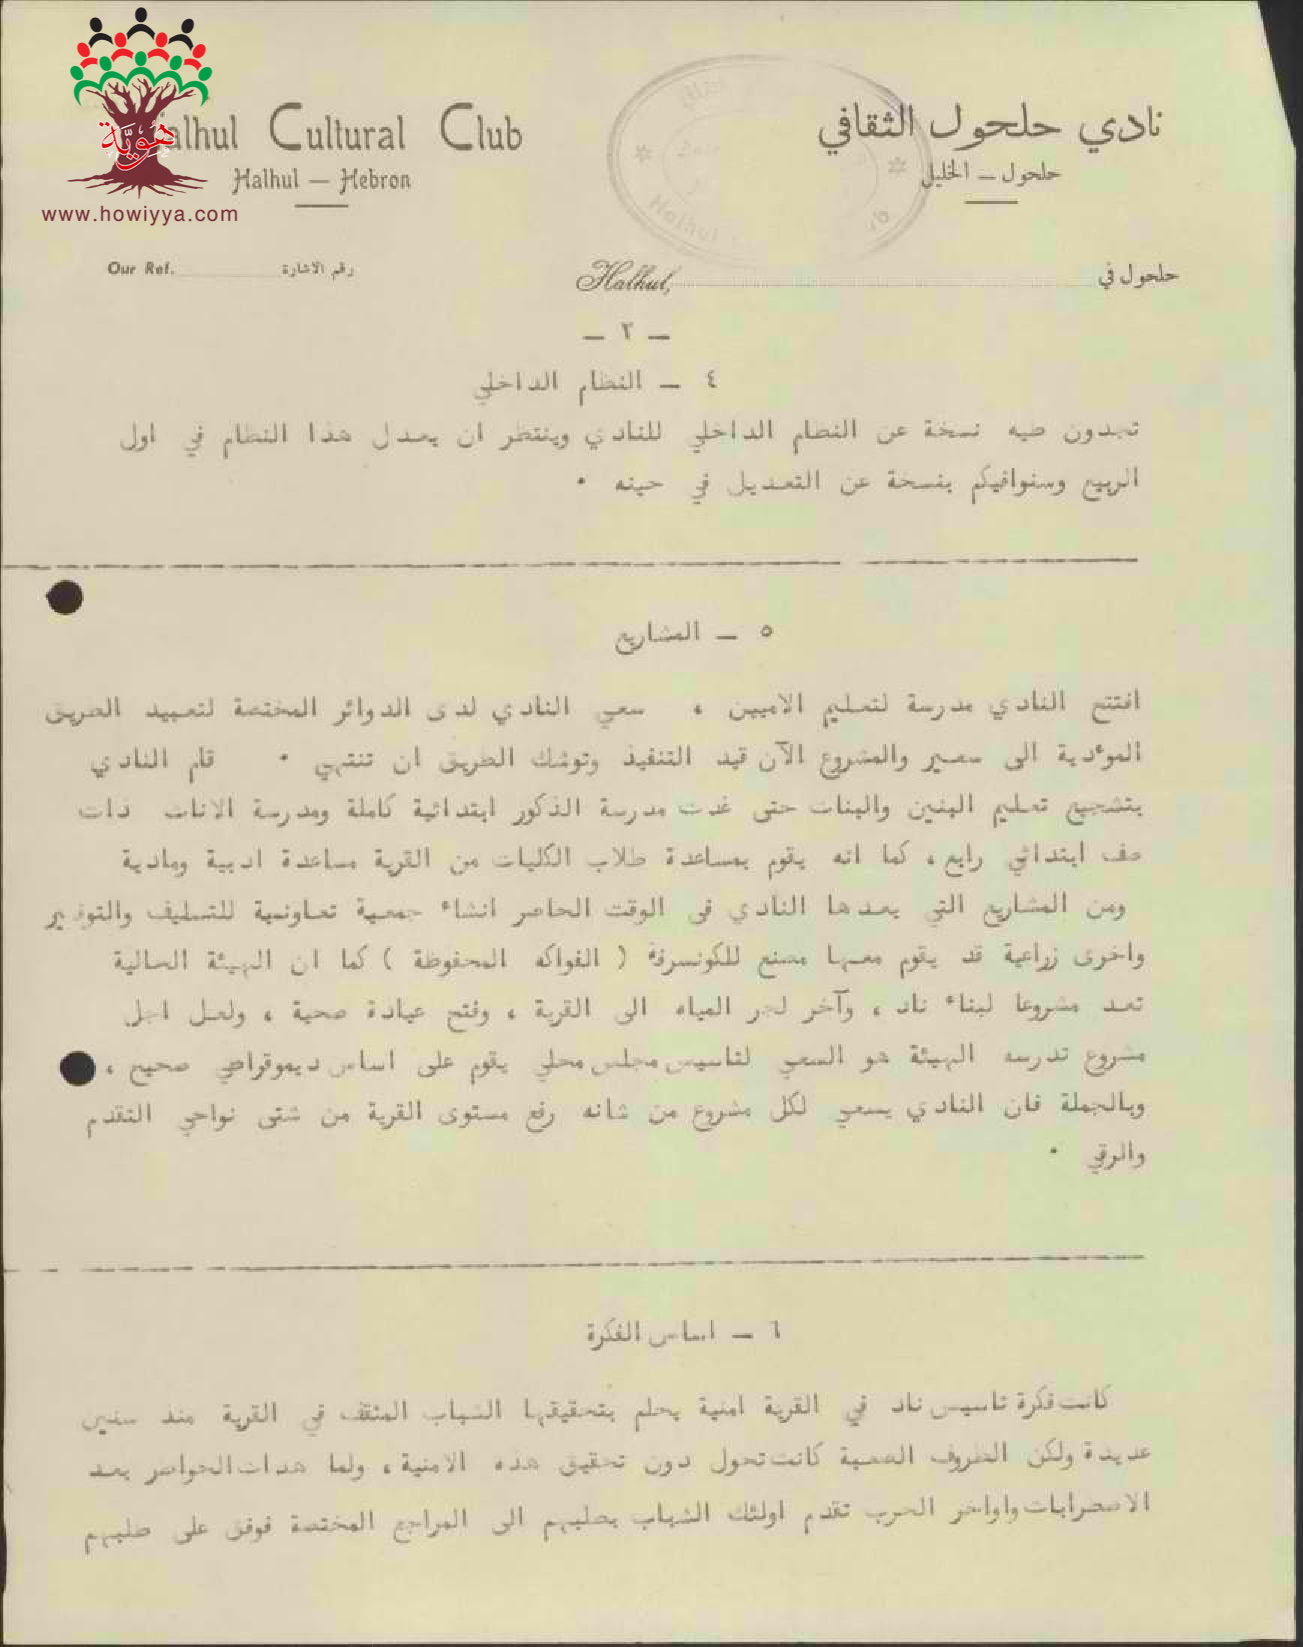 هوية
www.howiyya.com
Halhul Cultural Club
Halhul — Hebron
نادي حلحول الثقافي
حلحول — الخليل
Halhul
Our Ref. رقم الاشارة
Halhul, حلحول في
— ٢ —
٤ — النظام الداخلي
تجدون طيه نسخة عن النظام الداخلي للنادي وينتظر ان يعدل هذا النظام في اول
الربيع وسنوافيكم بنسخة عن التعديل في حينه .
٥ — المشاريع
افتتح النادي مدرسة لتعليم الاميين ، سعى النادي لدى الدوائر المختصة لتعبيد الطريق
الموءدية الى سعير والمشروع الآن قيد التنفيذ وتوشك الطريق ان تنتهي . قام النادي
بتشجيع تعليم البنين والبنات حتى غدت مدرسة الذكور ابتدائية كاملة ومدرسة الاناث ذات
صف ابتدائي رابع ، كما انه يقوم بمساعدة طلاب الكليات من القرية مساعدة ادبية ومادية
ومن المشاريع التي يعدها النادي في الوقت الحاضر انشاء جمعية تعاونية للتسليف والتوفير
واخرى زراعية قد يقوم معها مصنع للكونسرفة ( الفواكه المحفوظة ) كما ان الهيئة الحالية
تعد مشروعا لبناء ناد ، وآخر لجر المياه الى القرية ، وفتح عيادة صحية ، ولعل اجل
مشروع تدرسه الهيئة هو السعي لتاسيس مجلس محلي يقوم على اساس ديموقراطي صحيح ،
وبالجملة فان النادي يسعى لكل مشروع من شانه رفع مستوى القرية من شتى نواحي التقدم
والرقي .
٦ — اساس الفكرة
كانت فكرة تاسيس ناد في القرية امنية يحلم بتحقيقها الشباب المثقف في القرية منذ سنين
عديدة ولكن الظروف الصعبة كانت تحول دون تحقيق هذه الامنية ، ولما هدات الخواطر بعد
الاضرابات واواخر الحرب تقدم اولئك الشباب بطلبهم الى المراجع المختصة فوفق على طلبهم